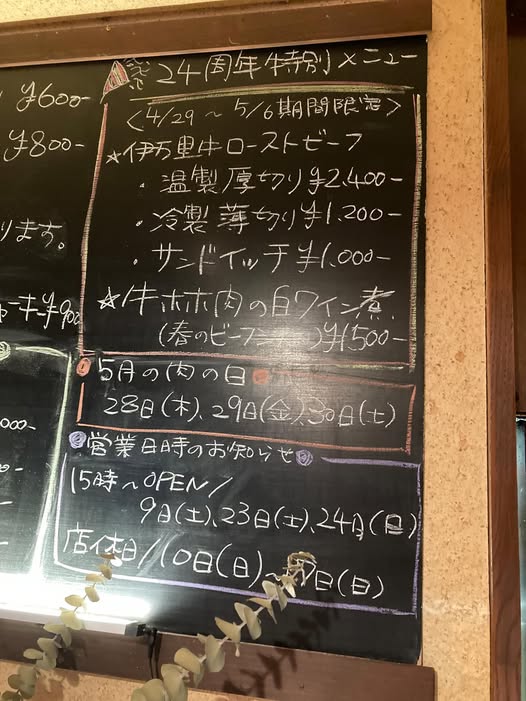 ¥600-
¥800-
ります。
ーキ¥900
000-
24周年特別メニュー
<4/29～5/6期間限定>
☆伊万里牛ローストビーフ
・温製厚切り¥2,400-
・冷製薄切り¥1,200-
・サンドイッチ¥1,000-
☆牛ホホ肉の白ワイン煮
(春のビーフシチュー)¥1500-
5月の肉の日
28日(木)、29日(金)、30日(土)
営業日時のお知らせ
15時～OPEN/
9日(土)、23日(土)、24日(日)
店休日/10日(日)
日(日)